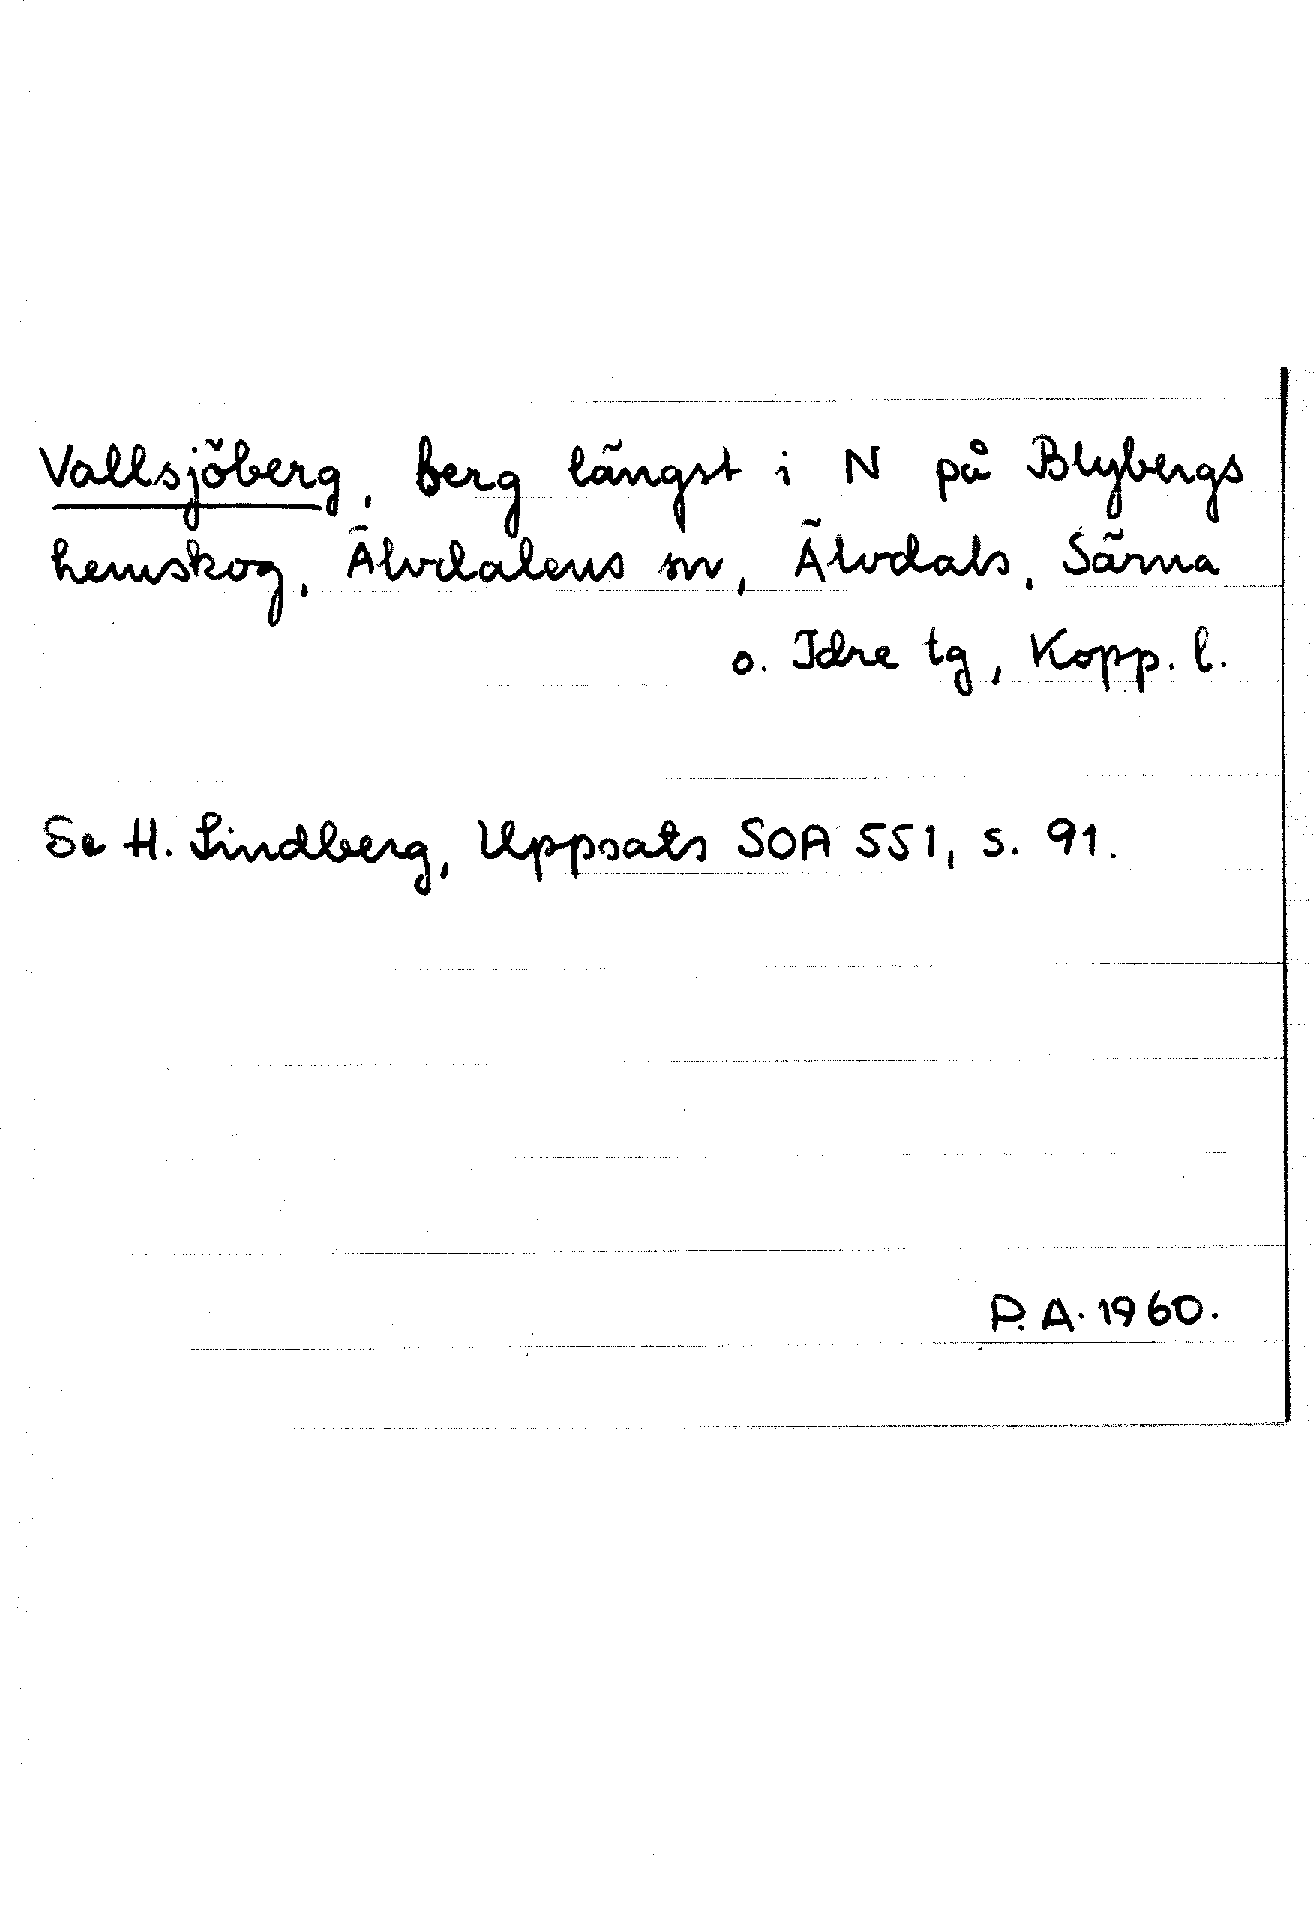 Vallsjöberg, berg längst i N på Blybergs
hemskog, Älvdalens sn, Älvdals, Särna
o. Idre tg, Kopp. l.
Se H. Lindberg, Uppsats SOA 551, s. 91.
P.A. 1960.